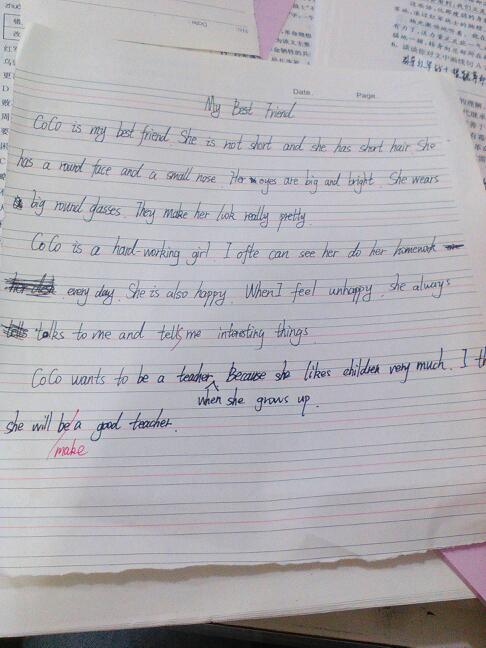 Date. Page.
My Best Friend
CoCo is my best friend. She is not short and she has short hair. She
has a round face and a small nose. Her eyes are big and bright. She wears
big round glasses. They make her look really pretty.
CoCo is a hard-working girl. I ofte can see her do her homework
every day. She is also happy. When I feel unhappy, she always
talks to me and tells me interesting things.
CoCo wants to be a teacher. Because she likes children very much. I th
when she grows up.
she will be a good teacher.
make